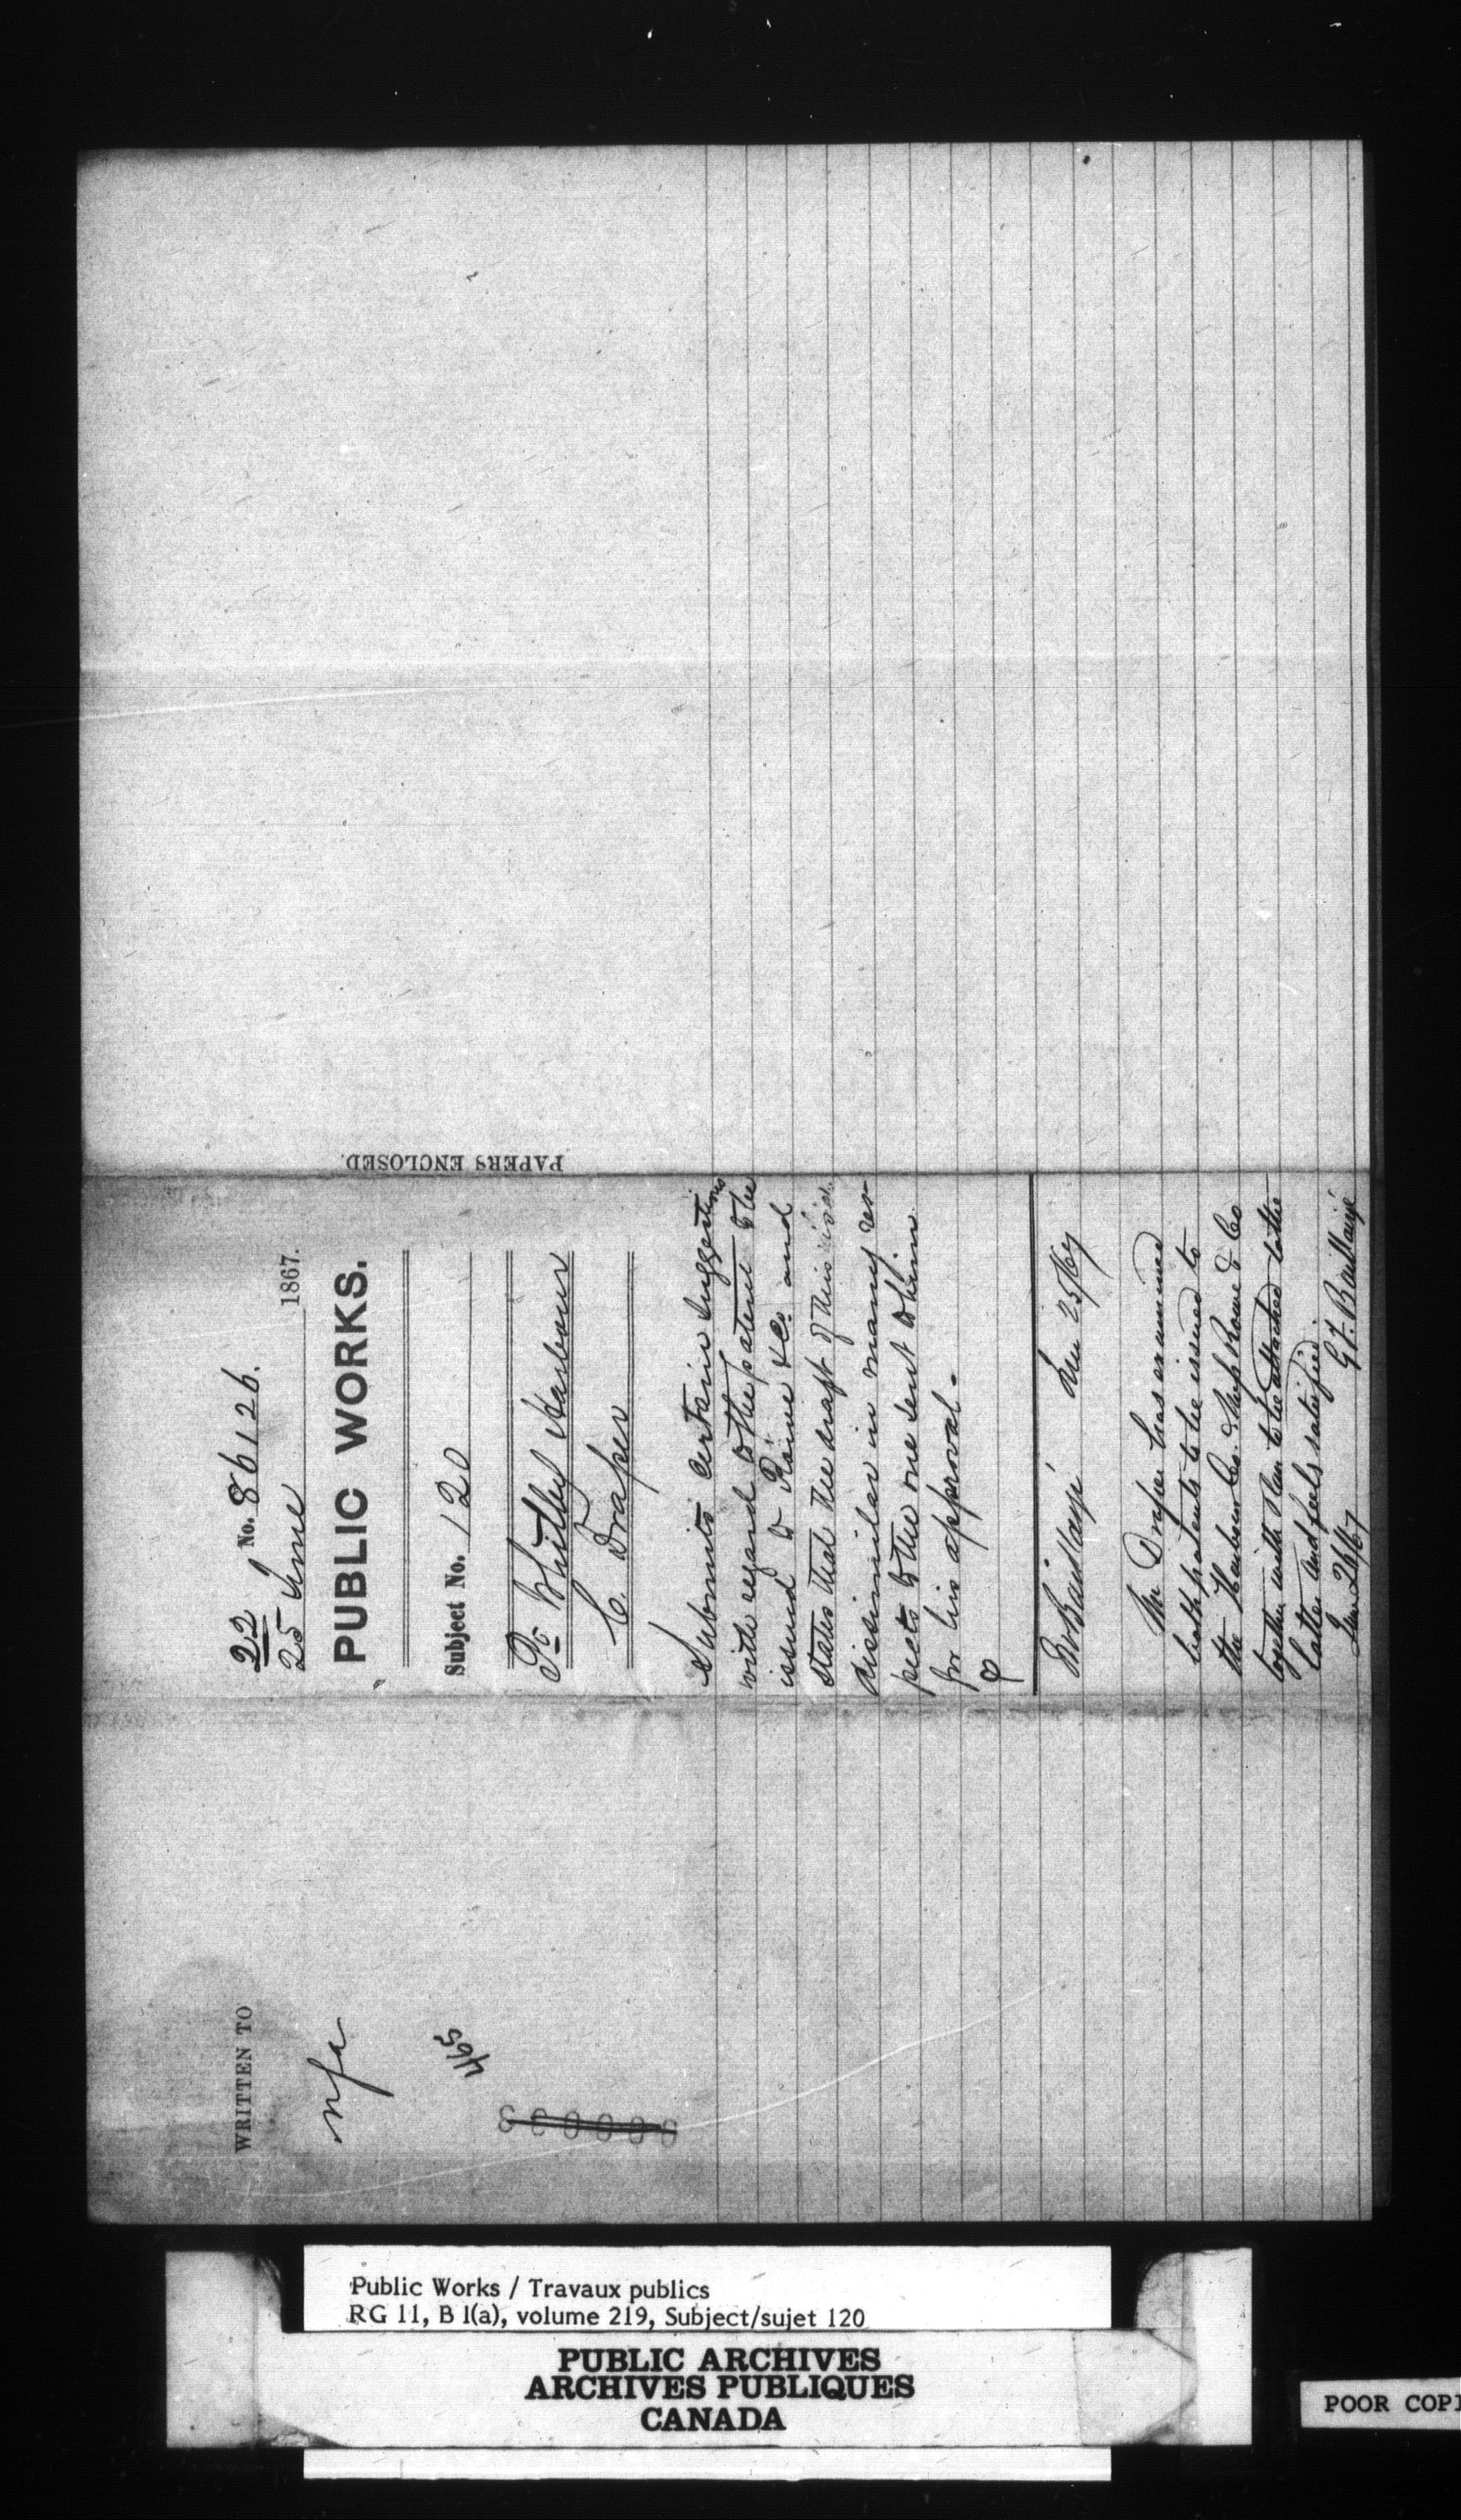 22 No. 86126.
25 June 1867.
PUBLIC WORKS.
Subject No. 120
Pt Whitby Harbour
C Draper
Submits certain suggestions
with regard to the patent to be
issued to Rowe & Co. and
states that the draft of this is
dissimilar in many res-
pects to the one sent to him
for his approval -
Mr Baillairgé June 25/67
Mr Draper has examined
both patents to be issued to
the Harbour Co. & Mess Rowe & Co
together with plan to be attached to the
latter and feels satisfied.
June 26/67 G.F. Baillairgé
PAPERS ENCLOSED.
WRITTEN TO
nfa
465
Public Works / Travaux publics
RG 11, B 1(a), volume 219, Subject/sujet 120
PUBLIC ARCHIVES
ARCHIVES PUBLIQUES
CANADA
POOR COPI